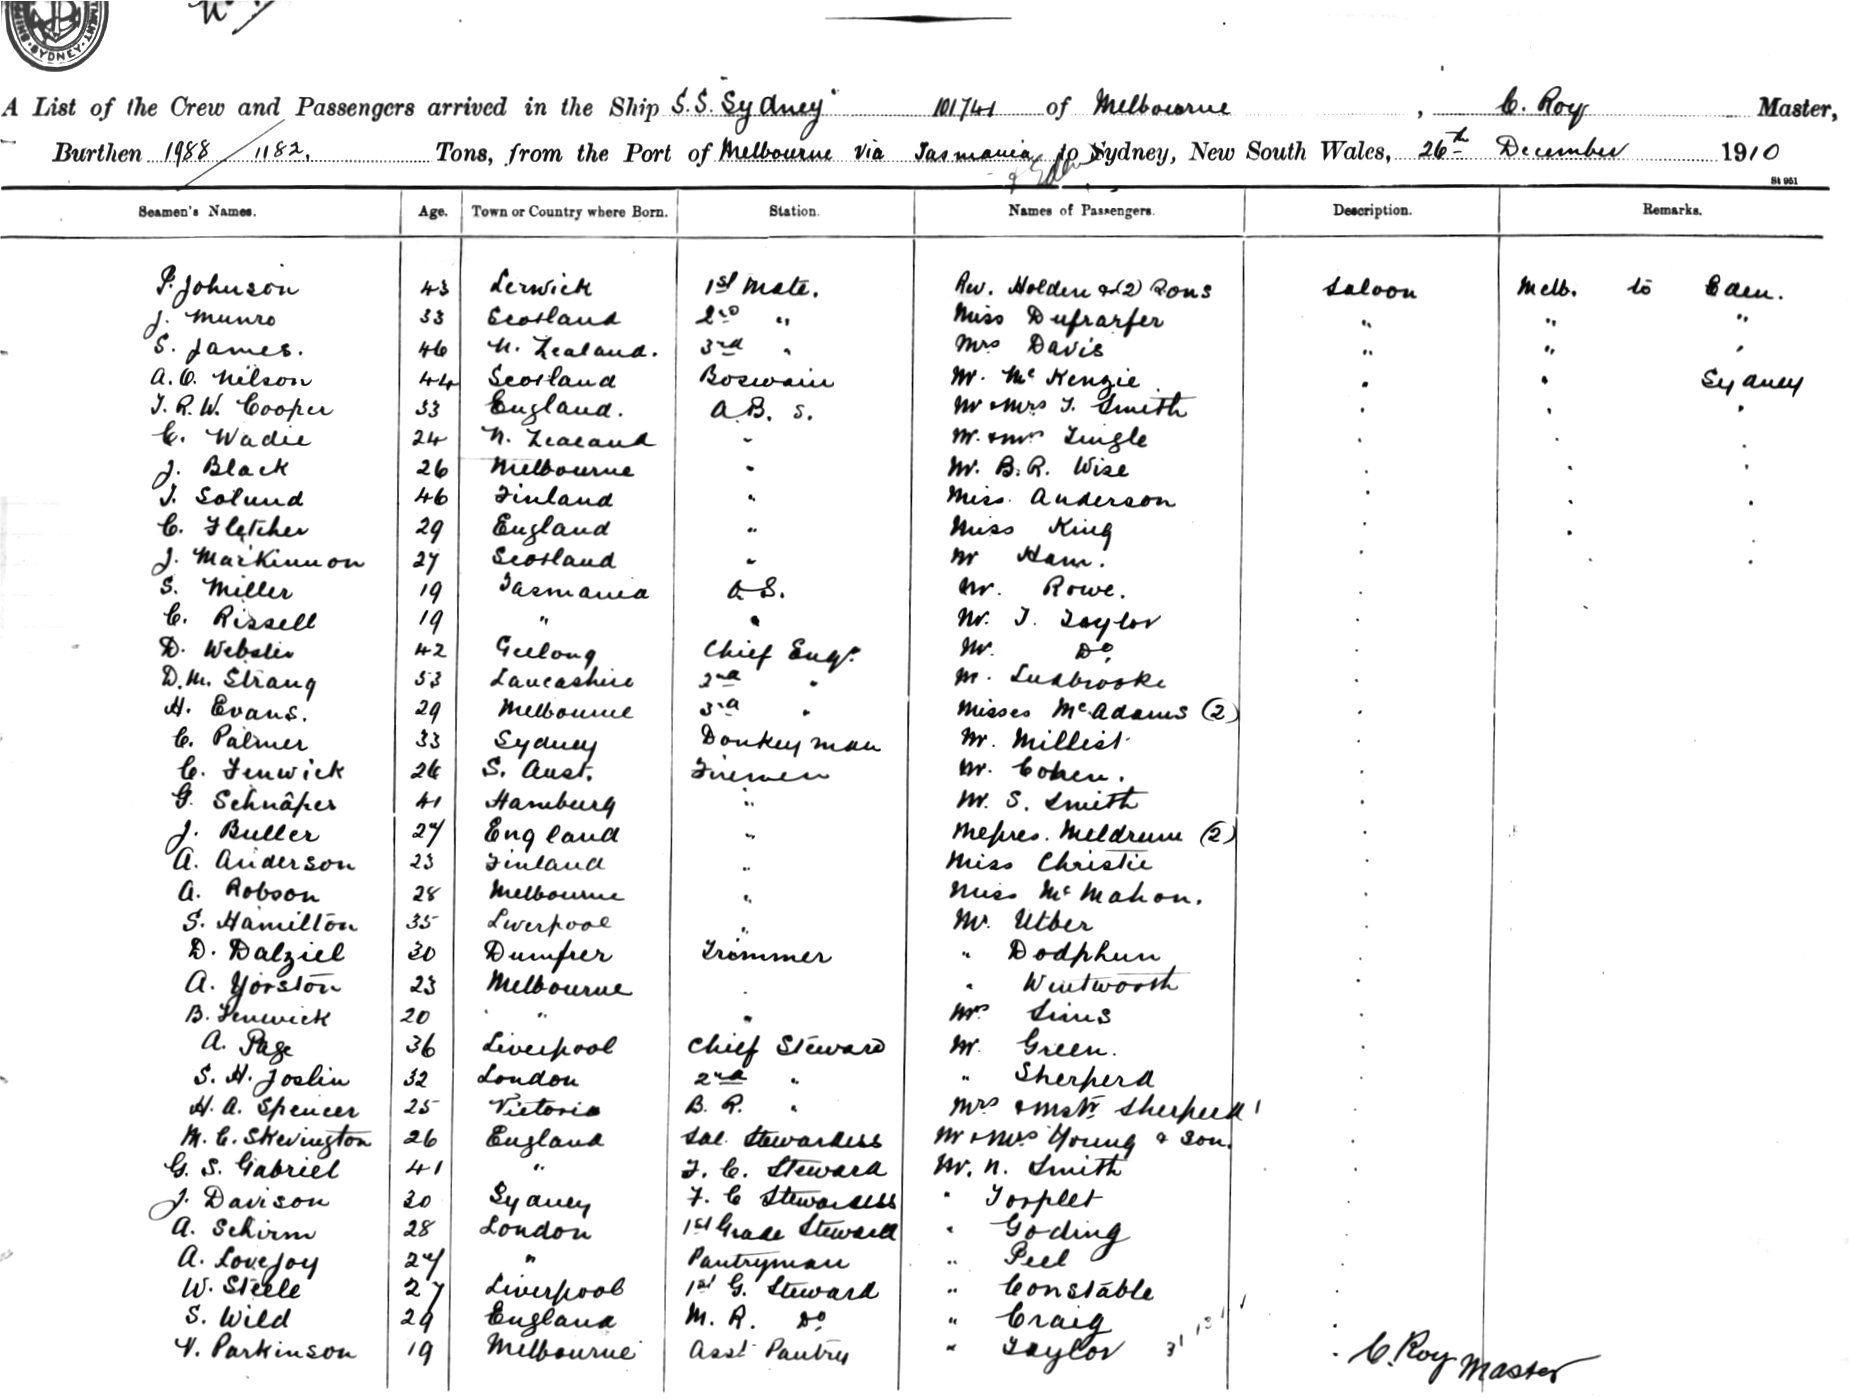 SYDNEY
A List of the Crew and Passengers arrived in the Ship S.S. Sydney 101741 of Melbourne, C. Roy Master,
Burthen 1988 / 1182. Tons, from the Port of Melbourne via Tasmania & Eden to Sydney, New South Wales, 26th December 1910
St 961
Seamen's Names. Age. Town or Country where Born. Station. Names of Passengers. Description. Remarks.
P. Johnson 43 Lerwick 1st Mate. Rev. Holden & (2) Sons Saloon Melb. to Eden.
J. Munro 33 Scotland 2nd " Miss " " "
S. James. 46 N. Zealand. 3rd " Mrs Davis " " "
A. C. Nilson 44 Scotland Boswain Mr. McKenzie " " Sydney
T. R. W. Cooper 33 England. A.B. s. Mr & Mrs T. Smith " " "
C. Wadie 24 N. Zealand " Mr. & Mrs Tingle " " "
J. Black 26 Melbourne " Mr. B. R. Wise " " "
J. Solund 46 Finland " Miss Anderson " " "
C. Fletcher 29 England " Miss King " " "
J. MacKinnon 27 Scotland " Mr Ham. " "
S. Miller 19 Tasmania O.S. Mr. Rowe. "
C. Rissell 19 " " Mr. T. Taylor "
D. Webster 42 Geelong Chief Engr. Mr. Do "
D. M. Strang 53 Lancashire 2nd " Mr. Ludbrooke "
H. Evans. 29 Melbourne 3rd " Misses McAdams (2) "
C. Palmer 33 Sydney Donkeyman Mr. Millist "
C. Fenwick 26 S. Aust. Firemen Mr. Cohen. "
G. Schnâper 41 Hamburg " Mr. S. Smith "
J. Buller 27 England " Messrs. Meldrum (2) "
A. Anderson 23 Finland " Miss Christie "
A. Robson 28 Melbourne " Miss McMahon. "
S. Hamilton 35 Liverpool " Mr. Utber "
D. Dalziel 30 Dumfrer Trimmer " Dodphun "
A. Yorston 23 Melbourne " " Wentworth "
B. Fenwick 20 " " Mrs Sims "
A. Page 36 Liverpool Chief Steward Mr. Green. "
S. H. Joslin 32 London 2nd " " Sherperd "
H. A. Spencer 25 Victoria B. R. " Mrs & Mstr Sherperd 1 "
M. C. Skevington 26 England Sal. Stewardess Mr & Mrs Young & Son. "
G. S. Gabriel 41 " F. C. Steward Mr. N. Smith "
J. Davison 30 Sydney F. C Stewardess " Torplet "
A. Schirm 28 London 1st Grade Steward " Goding "
A. Lovejoy 27 " Pantryman " Peel "
W. Steele 27 Liverpool 1st G. Steward " Constable "
S. Wild 29 England M. R. Do " Craig "
V. Parkinson 19 Melbourne Asst Pantry " Taylor "
C. Roy Master